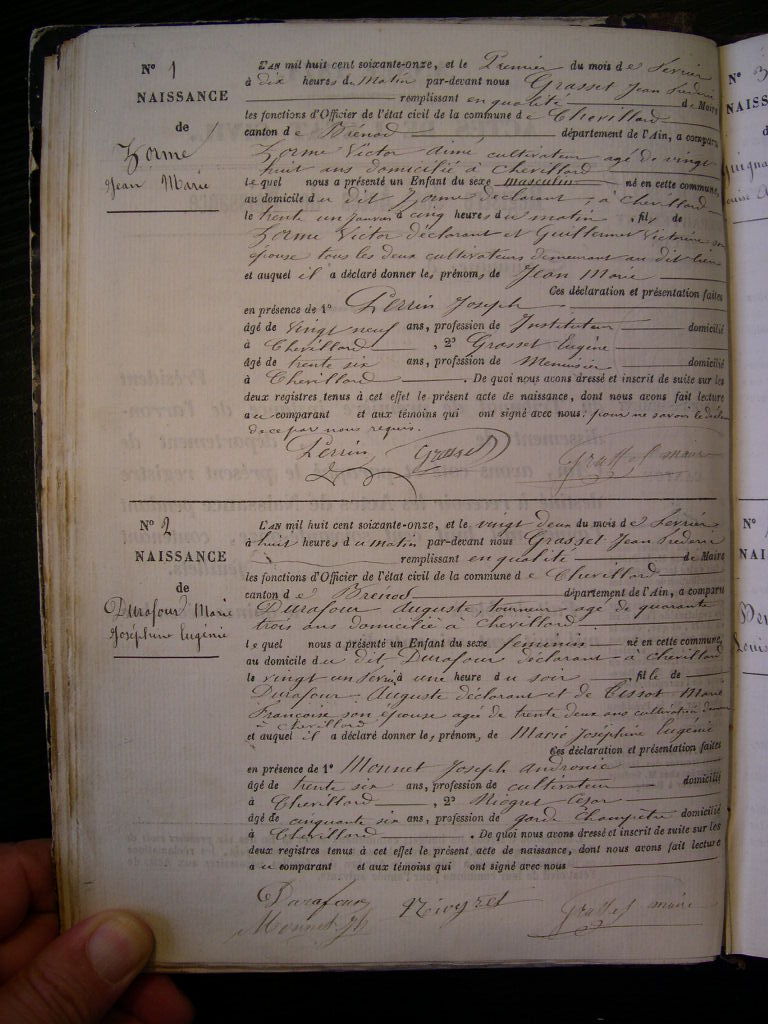 N° 1
NAISSANCE
de
Zorme
Jean Marie
L'AN mil huit cent soixante-onze, et le Premier du mois de Février
à dix heures du Matin par-devant nous Grasset Jean
remplissant en qualité de Maire
les fonctions d'Officier de l'état civil de la commune de Chevillard
canton de Brénod département de l'Ain, a comparu
Zorme Victor aimé cultivateur agé de vingt
huit ans domicilié à Chevillard
lequel nous a présenté un Enfant du sexe masculin né en cette commune,
au domicile du dit Zorme déclarant, à Chevillard
le trente un Janvier à cinq heures du matin, fils de
Zorme Victor déclarant et Guillermet Victorine son
épouse tous les deux cultivateurs demeurant au dit lieu
et auquel il a déclaré donner les prénoms de Jean Marie
Ces déclaration et présentation faites
en présence de 1° Perrin Joseph
âgé de vingt neuf ans, profession de Instituteur domicilié
à Chevillard, 2° Grasset Eugène
âgé de trente six ans, profession de Menuisier domicilié
à Chevillard. De quoi nous avons dressé et inscrit de suite sur les
deux registres tenus à cet effet le présent acte de naissance, dont nous avons fait lecture
au comparant et aux témoins qui ont signé avec nous: pour ne savoir le déclarant
de ce par nous requis.
Perrin Grasset Grasset maire
N° 2
NAISSANCE
de
Durafour Marie
Joséphine Eugénie
L'AN mil huit cent soixante-onze, et le vingt deux du mois de Février
à huit heures du matin par-devant nous Grasset Jean
remplissant en qualité de Maire
les fonctions d'Officier de l'état civil de la commune de Chevillard
canton de Brenod département de l'Ain, a comparu
Durafour Auguste, tourneur agé de quarante
trois ans domicilié à Chevillard
lequel nous a présenté un Enfant du sexe féminin né en cette commune,
au domicile du dit Durafour déclarant à Chevillard
le vingt un Févri à une heure du soir, fille de
Durafour Auguste déclarant et de Tissot Marie
Françoise son épouse agée de trente deux ans
à Chevillard
et auquel il a déclaré donner les prénoms de Marie Joséphine Eugénie
Ces déclaration et présentation faites
en présence de 1° Monnet Joseph Andronic
âgé de trente six ans, profession de cultivateur domicilié
à Chevillard, 2° Niogret César
âgé de cinquante six ans, profession de garde Champêtre domicilié
à Chevillard. De quoi nous avons dressé et inscrit de suite sur les
deux registres tenus à cet effet le présent acte de naissance, dont nous avons fait lecture
au comparant et aux témoins qui ont signé avec nous
Durafour Niogret Grasset maire
Monnet Jh